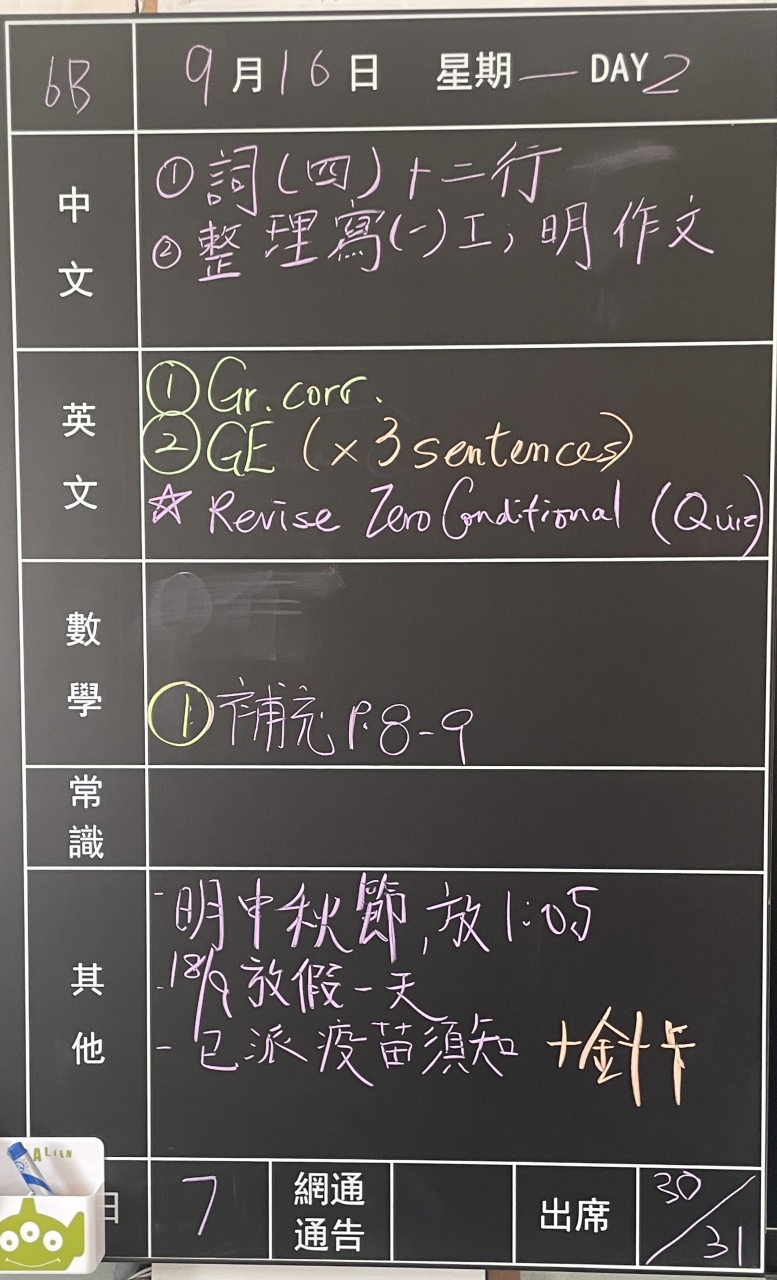 6B 9月16日 星期一 DAY 2
中文
①詞(四)十二行
②整理寫(一)工，明作文
英文
①Gr. corr.
②GE (×3 sentences)
☆ Revise Zero Conditional (Quiz)
數學
①補充 P.8-9
常識
其他
-明中秋節,放1:05
-18/9放假一天
-已派疫苗須知 +針卡
ALIEN
日 7 網通通告 出席 30/31